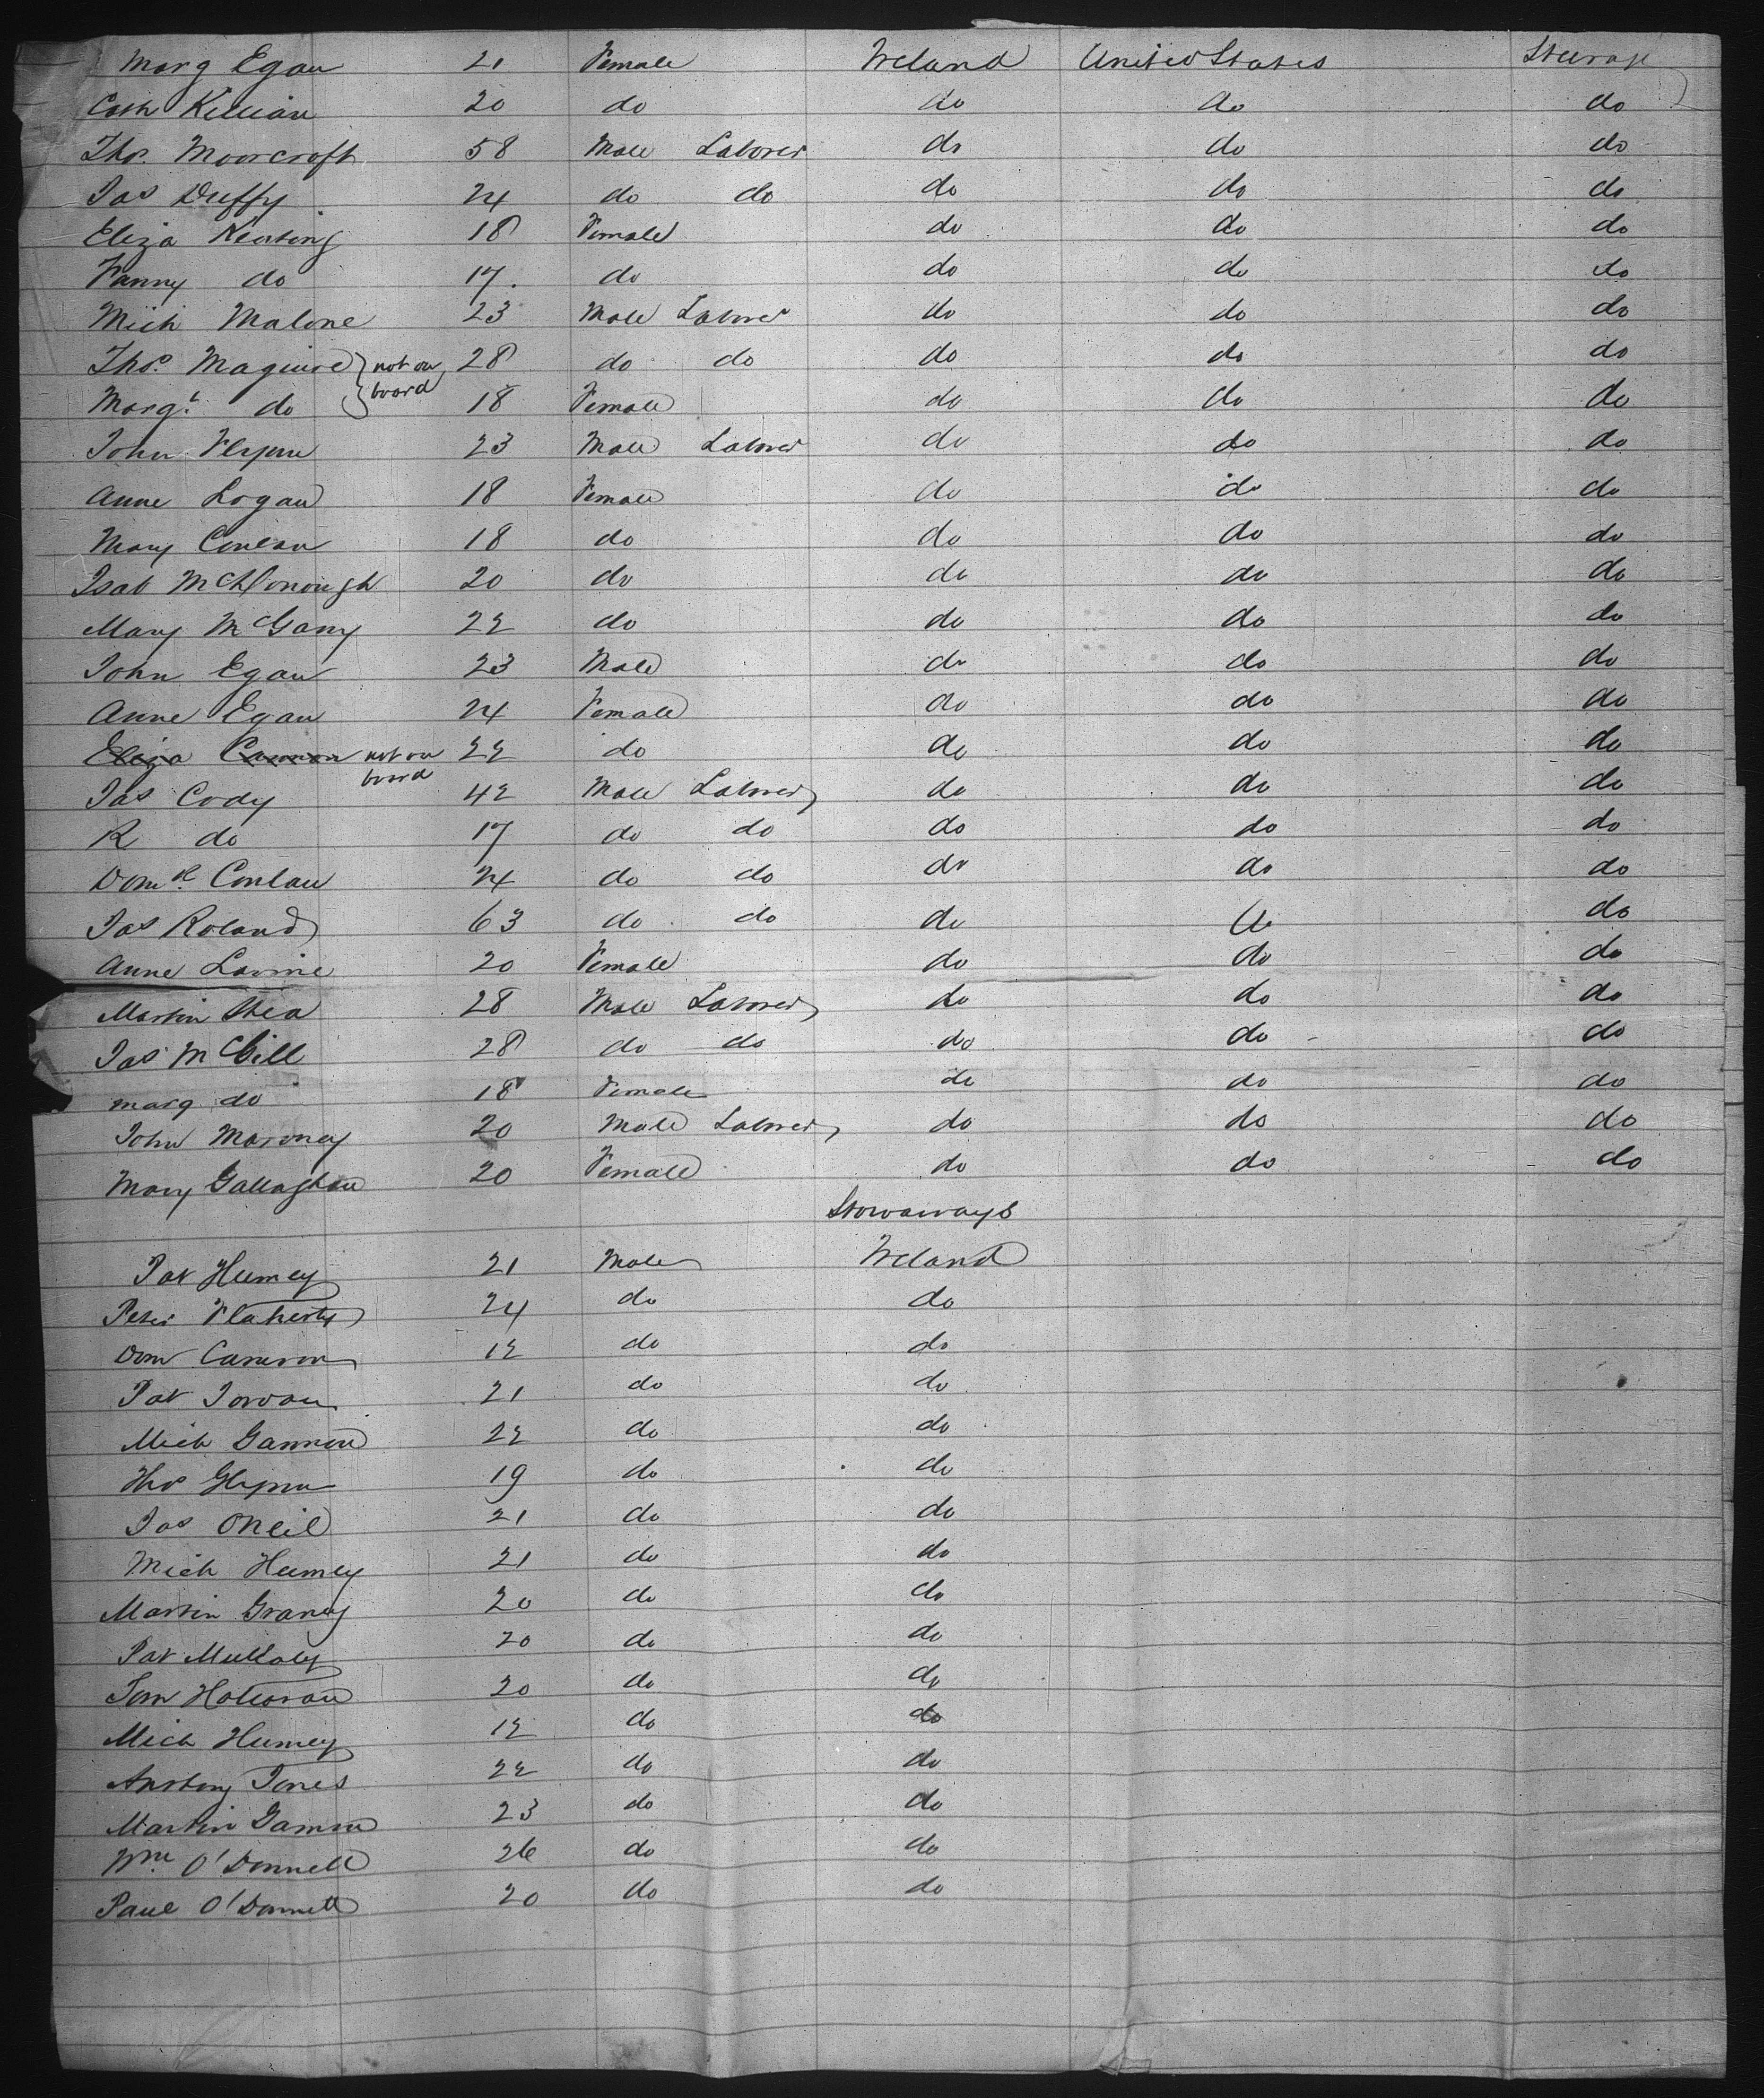 Marg Egan 21 Female Ireland United States Steerage
Cath Killian 20 do do do do
Thos. Moorcroft 58 Male Laborer do do do
Jas Duffy 24 do do do do do
Eliza Keating 18 Female do do do
Fanny do 17 do do do do
Mich Malone 23 Male Laborer do do do
Thos. Maguire } not on board 28 do do do do do
Margt. do 18 Female do do do
John Flynn 23 Male Laborer do do do
Anne Logan 18 Female do do do
Mary Conlan 18 do do do do
Isab McDonough 20 do do do do
Mary McGarry 22 do do do do
John Egan 23 Male do do do
Anne Egan 24 Female do do do
Eliza Cannon not on board 22 do do do do
Jas Cody 42 Male Laborer do do do
R do 17 do do do do do
Domk. Conlan 24 do do do do do
Jas Roland 63 do do do do
Anne Lavine 20 Female do do do
Martin Shea 28 Male Laborer do do do
Jas McGill 28 do do do do do
Marg do 18 Female do do do
John Maroney 20 Male Laborer do do do
Mary Gallaghan 20 Female do do do
Stowaways
Pat 21 Male Ireland
Peter Flaherty 24 do do
Dom Cameron 12 do do
Pat Jordan 21 do do
Mich Gannon 22 do do
Thos Glynn 19 do do
Jas ONeil 21 do do
Mich 21 do do
Martin Graney 20 do do
Pat Mullaly 20 do do
Tom Holloran 20 do do
Mich 12 do do
Anthony Jones 22 do do
Martin Gannon 23 do do
Wm. O'Donnell 26 do do
Paul O'Donnell 20 do do